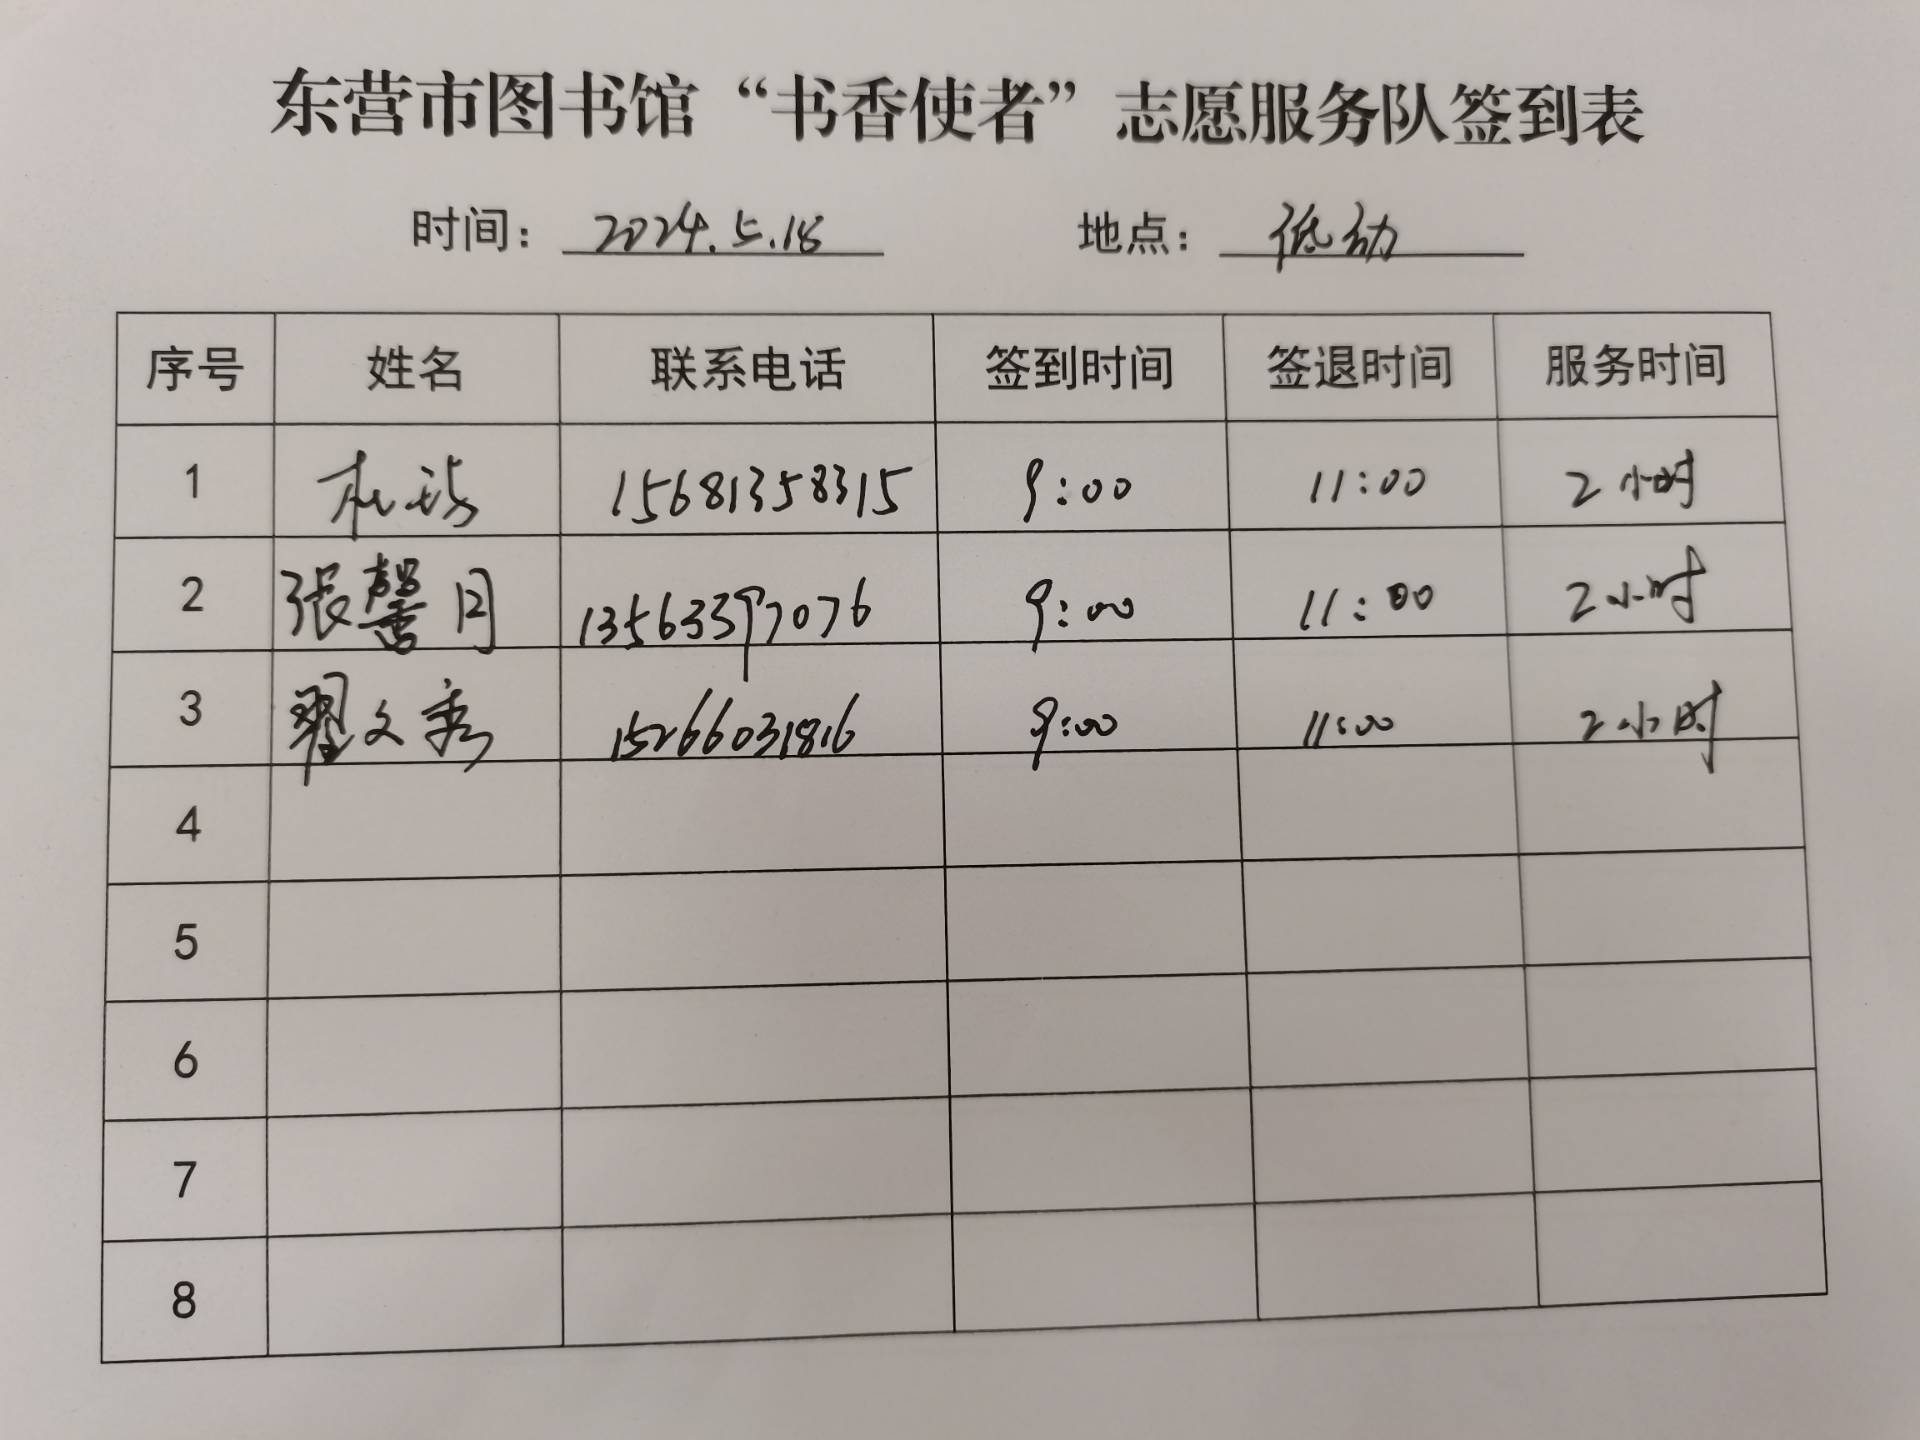 东营市图书馆“书香使者”志愿服务队签到表
时间：2024.5.18 地点：低幼
序号 姓名 联系电话 签到时间 签退时间 服务时间
1 15681358315 9:00 11:00 2小时
2 张馨月 13563397076 9:00 11:00 2小时
3 翟文秀 15266031816 9:00 11:00 2小时
4
5
6
7
8